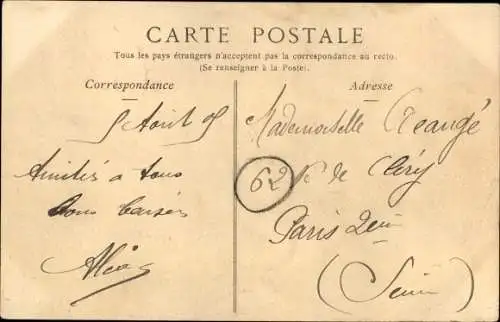 CARTE POSTALE
Tous les pays étrangers n'acceptent pas la correspondance au recto.
(Se renseigner à la Poste).
Correspondance
Adresse
5 Août 05
Amitiés a tous
bons baisers
Mademoiselle
62 R de Cléry
Paris 2em
(Seine)